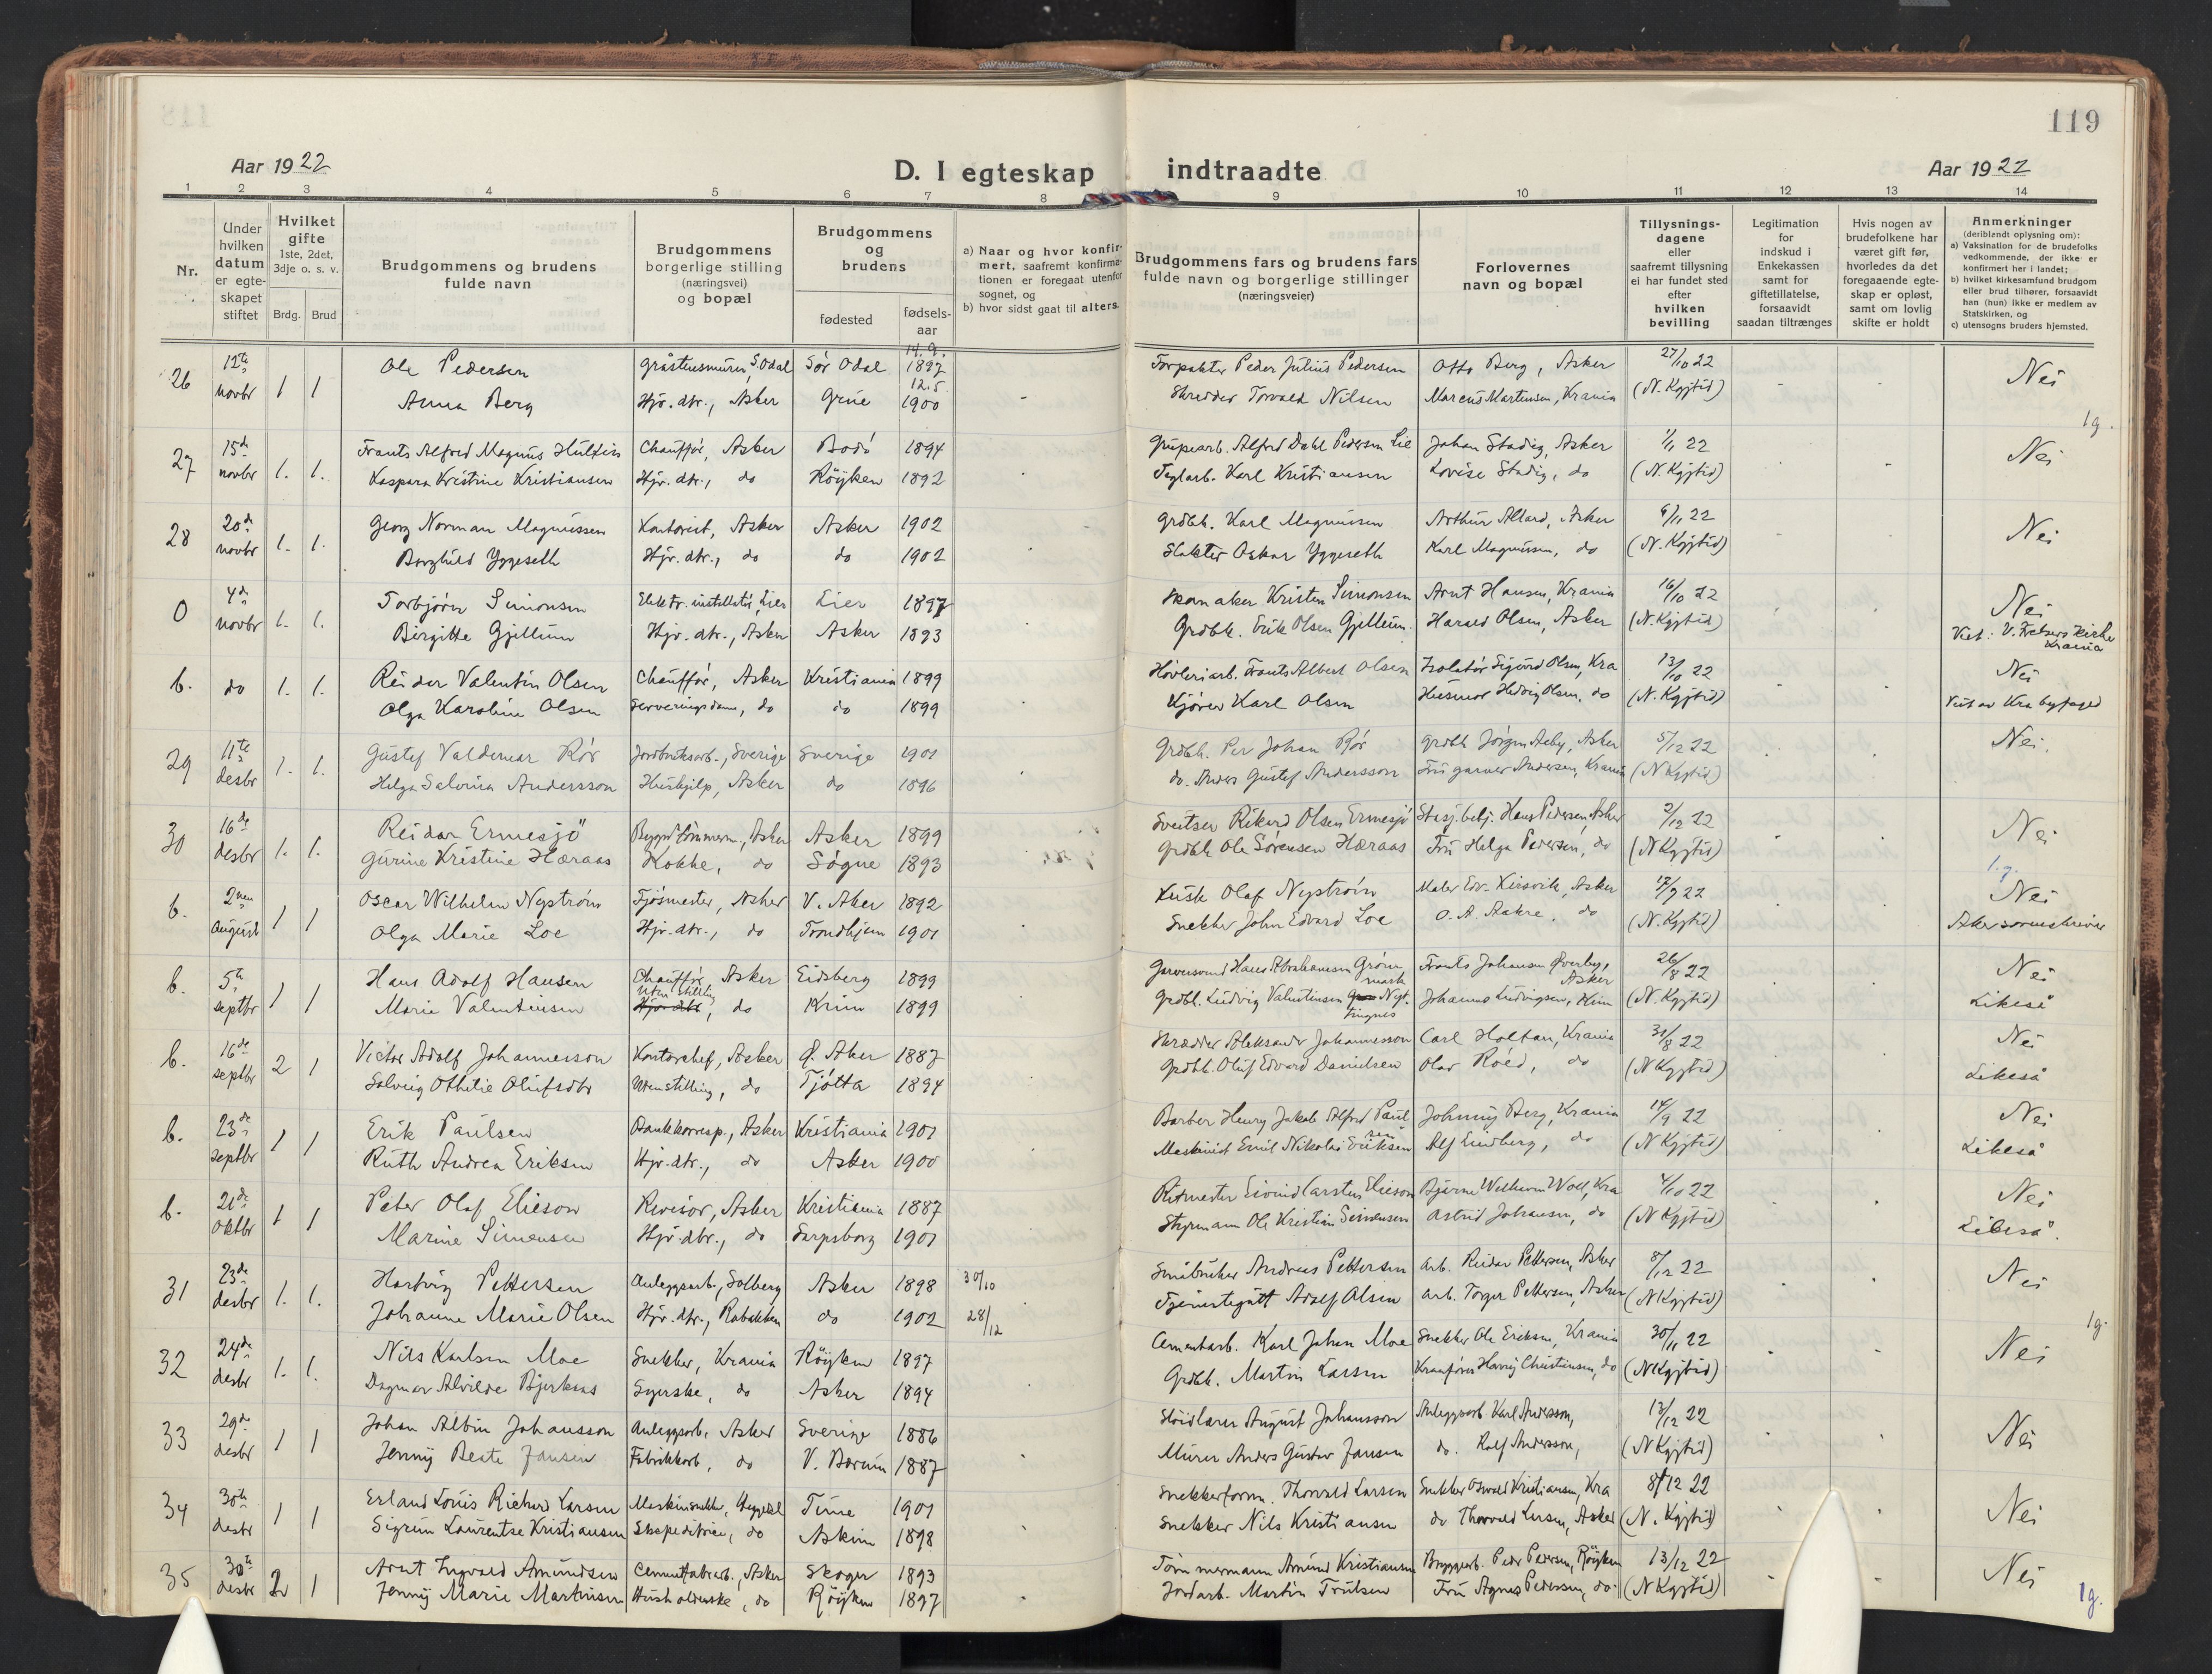 119
Aar 1922
D. I egteskap indtraadte
Aar 1922
1 2 3 4 5 6 7 8 9 10 11 12 13 14
Nr.
Under hvilken datum er egteskapet stiftet
Hvilket gifte 1ste, 2det, 3dje o. s. v.
Brdg. Brud
Brudgommens og brudens fulde navn
Brudgommens borgerlige stilling (næringsvei) og bopæl
Brudgommens og brudens
fødested
fødselsaar
a) Naar og hvor konfirmert, saafremt konfirmationen er foregaat utenfor sognet, og
b) hvor sidst gaat til alters.
Brudgommens fars og brudens fars fulde navn og borgerlige stillinger (næringsveier)
Forlovernes navn og bopæl
Tillysningsdagene eller saafremt tillysning ei har fundet sted efter hvilken bevilling
Legitimation for indskud i Enkekassen samt for giftetillatelse, forsaavidt saadan tiltrænges
Hvis nogen av brudefolkene har været gift før, hvorledes da det foregaaende egteskap er opløst, samt om lovlig skifte er holdt
Anmerkninger (deriblandt oplysning om):
a) Vaksination for de brudefolks vedkommende, der ikke er konfirmert her i landet;
b) hvilket kirkesamfund brudgom eller brud tilhører, forsaavidt han (hun) ikke er medlem av Statskirken, og
c) utensogns bruders hjemsted.
26 12te novbr 1 1 Ole Pedersen Gråstensmurer, S. Odal Sør Odal 14.9. 1897 Forpakter Peder Julius Pedersen Otto Berg, Asker 27/10 22 Nei
Anna Berg Hjv. dtr., Asker Grue 12.5 1900 Skredder Torvald Nilsen Marcus Martinsen, Krania (N. Kgjtid)
1g.
27 15de novbr 1. 1. Frants Alfred Magnus Chauffør, Asker Bodø 1894 Alfred Dahl Pedersen Lie Johan Stadig, Asker 1/11 22 Nei
Kaspara Kristine Kristiansen Hjv. dtr., do Røyken 1892 Teglarb. Karl Kristiansen Lovise Stadig, do (N. Kgjtid)
28 20de novbr 1. 1. Georg Norman Magnussen Kontorist, Asker Asker 1902 Grdbr. Karl Magnussen Arthur Allard, Asker 6/11 22 Nei
Borghild Yggeseth Hjv. dtr., do do 1902 Slakter Oskar Yggeseth Karl Magnussen, do (N. Kgjtid)
0 4de novbr 1. 1. Torbjørn Simonsen Elektr. installatør, Lier Lier 1897 Skomaker Kristen Simonsen Arnt Hansen, Krania 16/10 22 Nei
Birgitte Gjellum Hjv. dtr., Asker Asker 1893 Grdbr. Erik Olsen Gjellum Harald Olsen, Asker (N. Kgjtid) Viet: V. Frelsers Kirke Krania
b. do 1. 1. Reidar Valentin Olsen Chauffør, Asker Kristiania 1899 Høvleriarb. Frants Albert Olsen Isolatør Sigurd Olsen, Kra 13/10 22 Nei
Olga Karoline Olsen Serveringsdame, do do 1899 Kjører Karl Olsen Husmor Hedvig Olsen, do (N. Kgjtid) Viet av Kra byfoged
29 11te desbr 1. 1. Gustef Valdemar Rør Jordbruksarb., Sverige Sverige 1901 Grdbr. Per Johan Rør Grdbr. Jørgen Aaby, Asker 5/12 22 Nei.
Helga Salvina Andersson Hushjelp, Asker do 1896 do. Anders Gustef Andersson Fru garver Andersen, Krania (N Kgjtid)
30 16de desbr 1. 1. Reidar Ermesjø Asker Asker 1899 Sveitser Rikard Olsen Ermesjø Hans Pedersen, Asker 2/12 22 Nei
Gurine Kristine Hæraas Kokke, do Søgne 1893 Grdbr. Ole Sørensen Hæraas Fru Helga Pedersen, do (N Kgjtid)
1.g.
b. 2nen August 1 1 Oscar Wilhelm Nystrøm Fjøsmester, Asker V. Aker 1892 Kusk Olaf Nystrøm Maler Edv. Kirsvik, Asker 17/7 22 Nei
Olga Marie Loe Hjv. dtr., do Trondhjem 1901 Snekker John Edvard Loe O. A. Aakre, do (N. Kgjtid) Aker sorenskriver
b. 5te septbr 1 1 Hans Adolf Hansen Chauffør, Asker Eidsberg 1899 Garversvend Hans Abrahamsen Grønmark Frants Johansen Øverby, Asker 26/8 22 Nei
Marie Valentinsen Uten stilling, do Krim 1899 Grdbr. Ludvig Valentinsen Johannes Ludvigsen, (N. Kgjtid) Likeså
b. 16de septbr 2 1 Victor Adolf Johannesson Kontorchef, Asker Ø. Aker 1887 Skrædder Aleksander Johannesson Carl Holtan, Krania 31/8 22 Nei
Solveig Othilie Olufsdtr Uten stilling, do Tjøtta 1894 Grdbr. Oluf Edvard Danielsen Olav Roed, do (N Kgjtid) Likeså
b. 23de septbr 1 1 Erik Paulsen Bankkorresp., Asker Kristiania 1901 Barber Henry Jakob Alfred Paulsen Johnny Berg, Krania 14/9 22 Nei
Ruth Andrea Eriksen Hjv. dtr., do Asker 1900 Maskinist Emil Nikolai Eriksen Alf Lindberg, do (N Kgjtid) Likeså
b. 21de oktbr 1 1 Peter Olaf Elieson Revisor, Asker Kristiania 1887 Ritmester Eivind Carsten Elieson Bjarne Wilhelm Woll, Kra 4/10 22 Nei
Marine Simensen Hjv. dtr., do Sarpsborg 1901 Styrmann Ole Kristian Simensen Astrid Johansen, do (N Kgjtid) Likeså.
31 23de desbr 1. 1. Hartvig Pettersen Anleggsarb., Solberg Asker 1898 30/10 Småbruker Andreas Pettersen Arb. Reidar Pettersen, Asker 8/12 22 Nei
Johanne Marie Olsen Hjv. dtr., Rabakken do 1902 28/12 Tjenestegutt Adolf Olsen Arb. Torger Pettersen, Asker (N Kgjtid)
1g.
32 24de desbr 1. 1. Nils Karlsen Moe Snekker, Krania Røyken 1897 Cementarb. Karl Johan Moe Snekker Ole Eriksen, Krania 30/11 22 Nei
Dagmar Alvilde Bjerkaas Syerske, do Asker 1894 Grdbr. Martin Larsen Christiansen, do (N Kgjtid)
33 29de desbr 1 1 Johan Albin Johansson Anleggsarb. Asker Sverige 1886 Sløidlærer August Johansson Anleggsarb Karl Andersson, 13/12 22 Nei
Jenny Beate Jansen Fabrikkarb, do V. Bærum 1887 Murer Anders Gustav Jansen do. Rolf Andersson, (N Kgjtid)
34 30te desbr 1 1 Erland Louis Richard Larsen Maskinsnekker, Heggedal Time 1901 Snekkerform. Thorvald Larsen Snekker Osvald Kristiansen, Kra 8/12 22 Nei
Sigrun Laurentse Kristiansen Ekspeditrice, do Askim 1898 Snekker Nils Kristiansen do Thorvald Larsen, Asker (N. Kgjtid)
35 30te desbr 2 1 Arnt Ingvald Amundsen Cementfabrarb., Asker Skoger 1893 Tømmermann Amund Kristiansen Peder Pedersen, Røyken 13/12 22 Nei
Jenny Marie Martinsen Husholderske, do Røyken 1897 Jordarb. Martin Trulsen Fru Agnes Pedersen, do. (N Kgjtid)
1g.